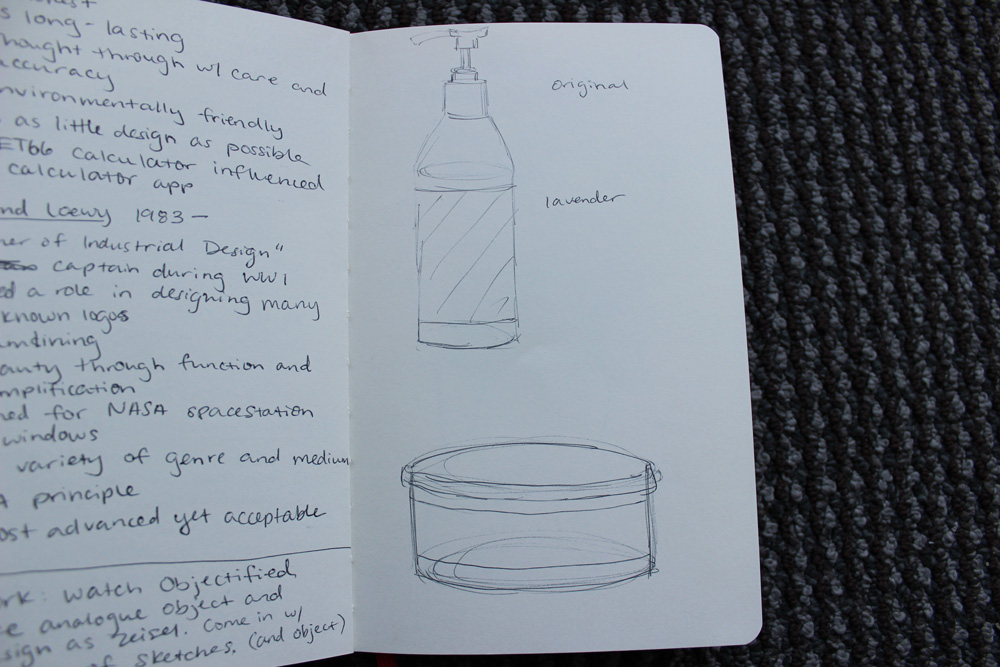 s long-lasting
thought through w/ care and
accuracy
nvironmentally friendly
as little design as possible
ET66 calculator influenced
calculator app
nd Loewy 1983 —
er of Industrial Design"
captain during WW1
ed a role in designing many
known logos
amlining
auty through function and
mplification
ned for NASA spacestation
windows
variety of genre and medium
A principle
ost advanced yet acceptable
rk: watch Objectified,
e analogue object and
sign as Zeisel. Come in w/
of sketches. (and object)
original
lavender